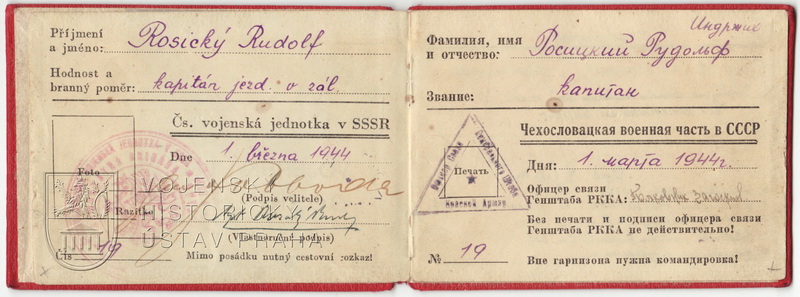 Příjmení
a jméno: Rosický Rudolf
Hodnost a
branný poměr: kapitán jezd. v zál.
Čs. vojenská jednotka v SSSR
Dne 1. března 1944
Foto
Razítko
(Podpis velitele)
(Vlastnoruční podpis)
Čís. 19
Mimo posádku nutný cestovní rozkaz!
VOJENSKÝ
HISTORICKÝ
ÚSTAV PRAHA
Индржих
Фамилия, имя
и отчество: Росицкий Рудольф
Звание: капитан
Чехословацкая военная часть в СССР
Печать
Красной Армии
Дня: 1. марта 1944г.
Офицер связи
Генштаба РККА:
Без печати и подписи офицера связи
Генштаба РККА не действительно!
№ 19
Вне гарнизона нужна командировка!